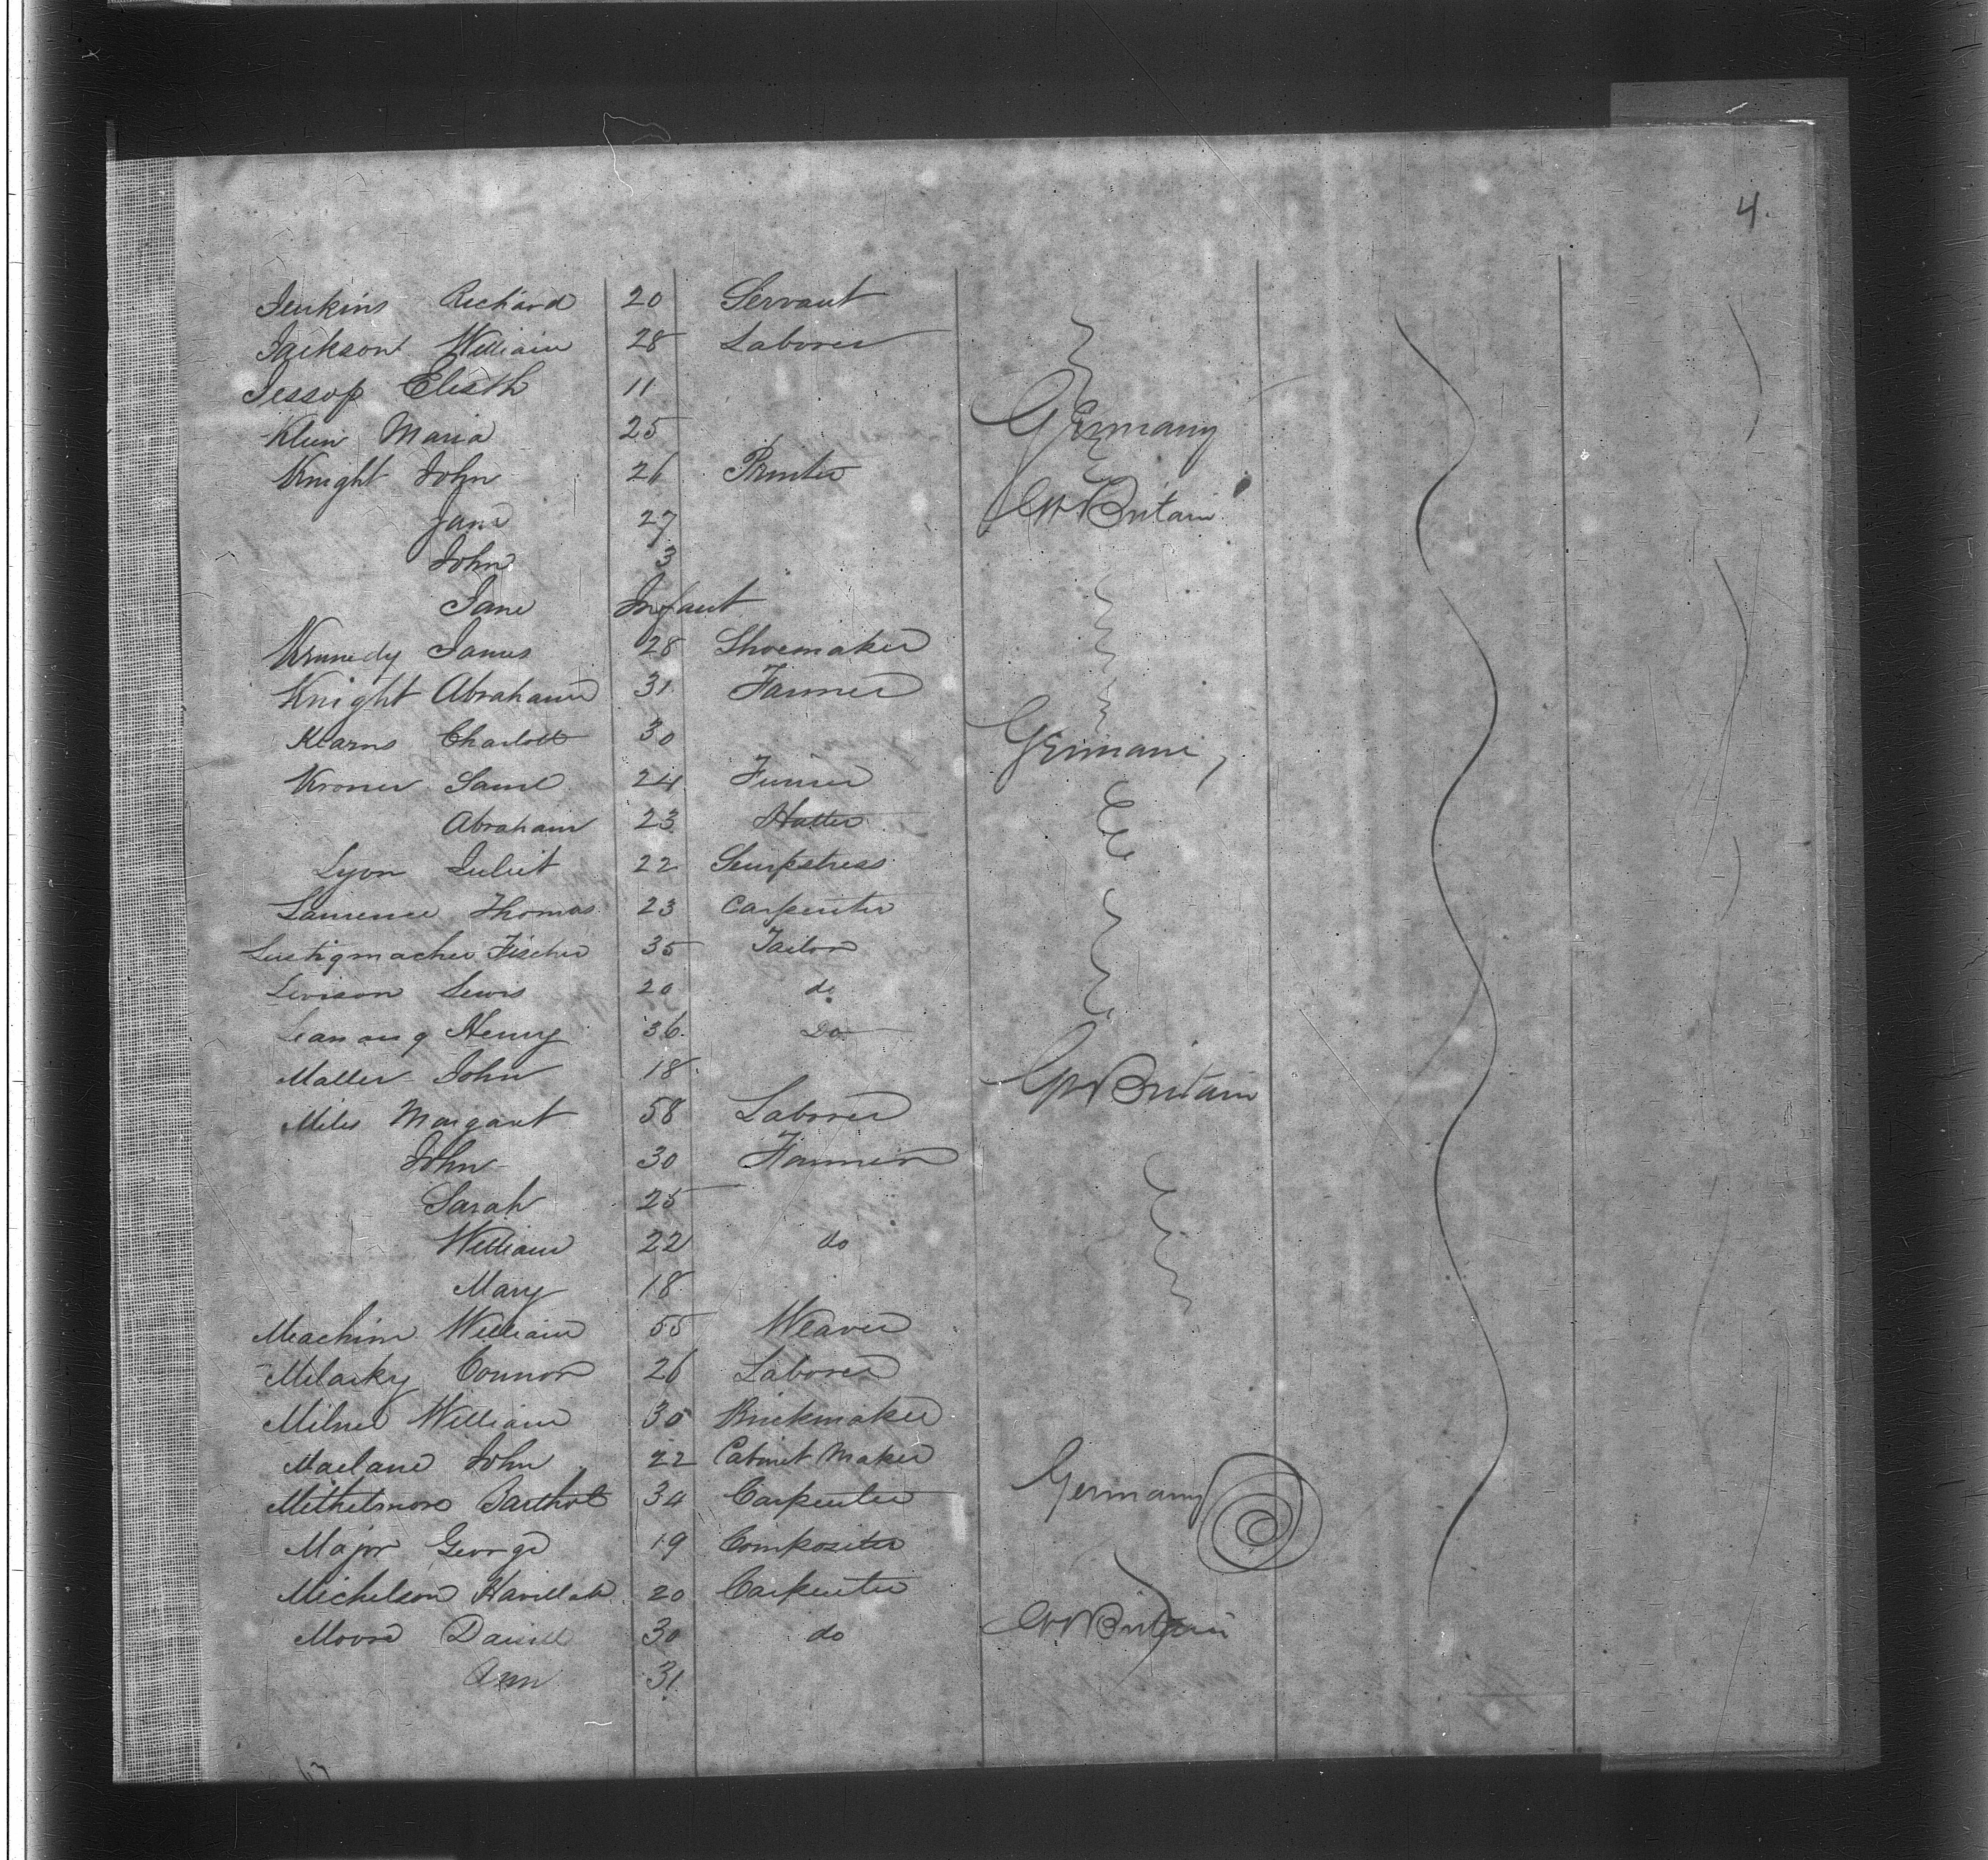 4.
Jenkins Richard 20 Servant
Jackson William 28 Laborer
Jessop Elisth 11
Klein Maria 25 Germany
Knight John 26 Printer
Jane 27 Gt Britain
John 3
Jane Infant
Kennedy James 28 Shoemaker
Knight Abraham 31 Farmer
Kearns Charlott 30 Germany
Kroner Saml 24 Furrier
Abraham 23 Hatter
Lyon Juliet 22 Sempstress
Laurence Thomas 23 Carpenter
Lustigmacher Fischer 35 Tailor
Levison Lewis 20 do
Henry 36 Do
Maller John 18 Gt Britain
Miles Margaret 58 Laborer
John 30 Farmer
Sarah 25
William 22 do
Mary 18
Meachim William 55 Weaver
Milarky Connor 26 Laborer
Milner William 30 Brickmaker
Maclane John 22 Cabinet Maker
Mithelmore Barthol 34 Carpenter Germany
Major George 19 Compositer
Michelson 20 Carpenter
Moore Daniel 30 do Gt Britain
Ann 31